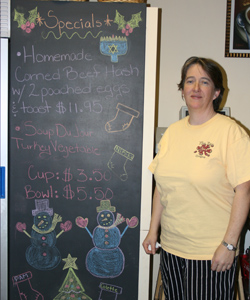 Specials
• Homemade
Corned Beef Hash
w/2 poached eggs
toast $11.95
• Soup Du Jur
Turkey Vegetable
Cup: $3.50
Bowl: $5.50